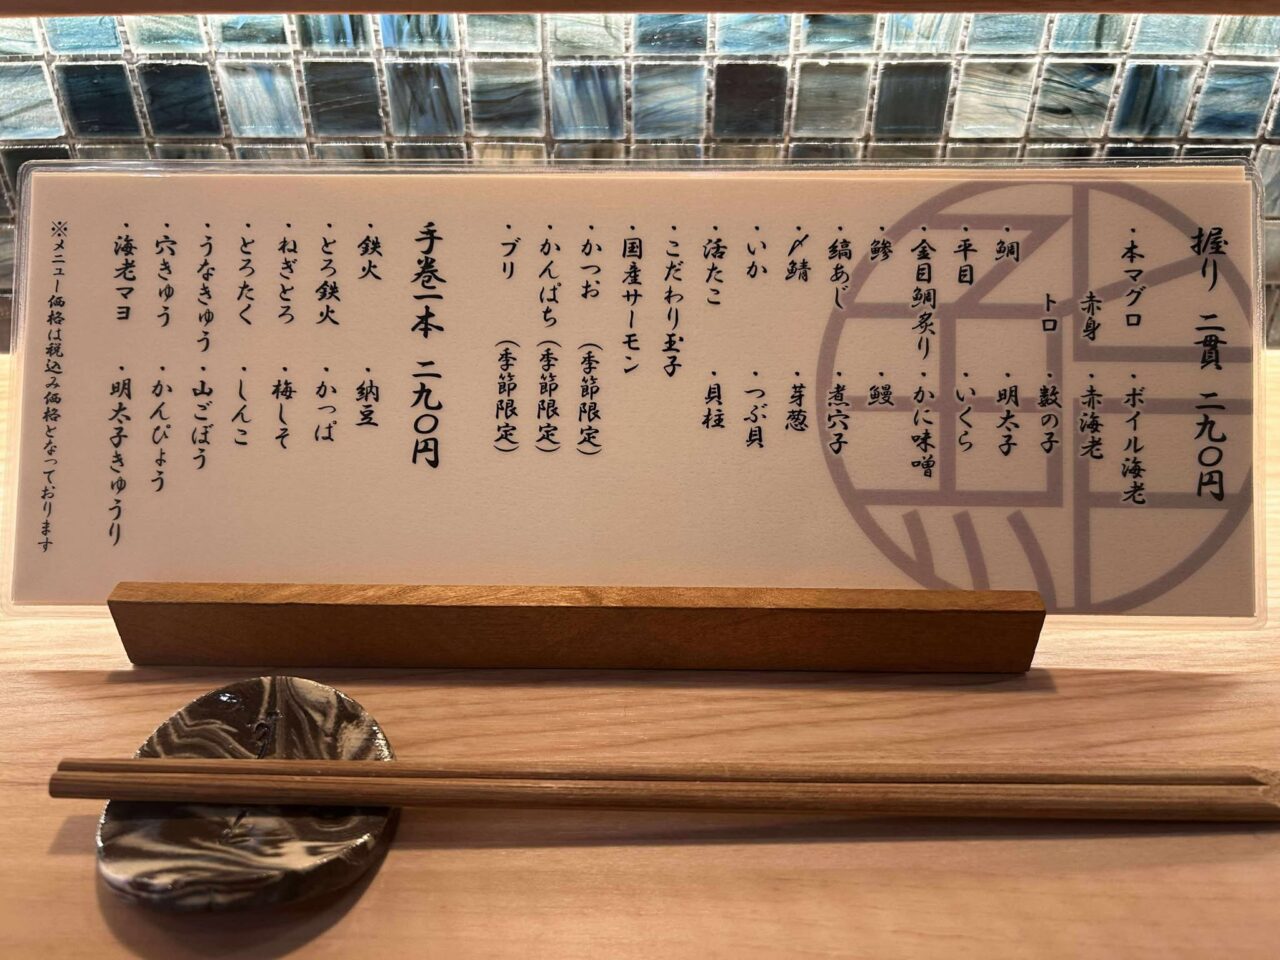 握り 二貫 二九〇円
・本マグロ ・ボイル海老
赤身 ・赤海老
トロ ・数の子
・鯛 ・明太子
・平目 ・いくら
・金目鯛炙り ・かに味噌
・鯵 ・鰻
・縞あじ ・煮穴子
・〆鯖 ・芽葱
・いか ・つぶ貝
・活たこ ・貝柱
・こだわり玉子
・国産サーモン
・かつお (季節限定)
・かんぱち (季節限定)
・ブリ (季節限定)
手巻一本 二九〇円
・鉄火 ・納豆
・とろ鉄火 ・かっぱ
・ねぎとろ ・梅しそ
・とろたく ・しんこ
・うなきゅう ・山ごぼう
・穴きゅう ・かんぴょう
・海老マヨ ・明太子きゅうり
※メニュー価格は税込み価格となっております